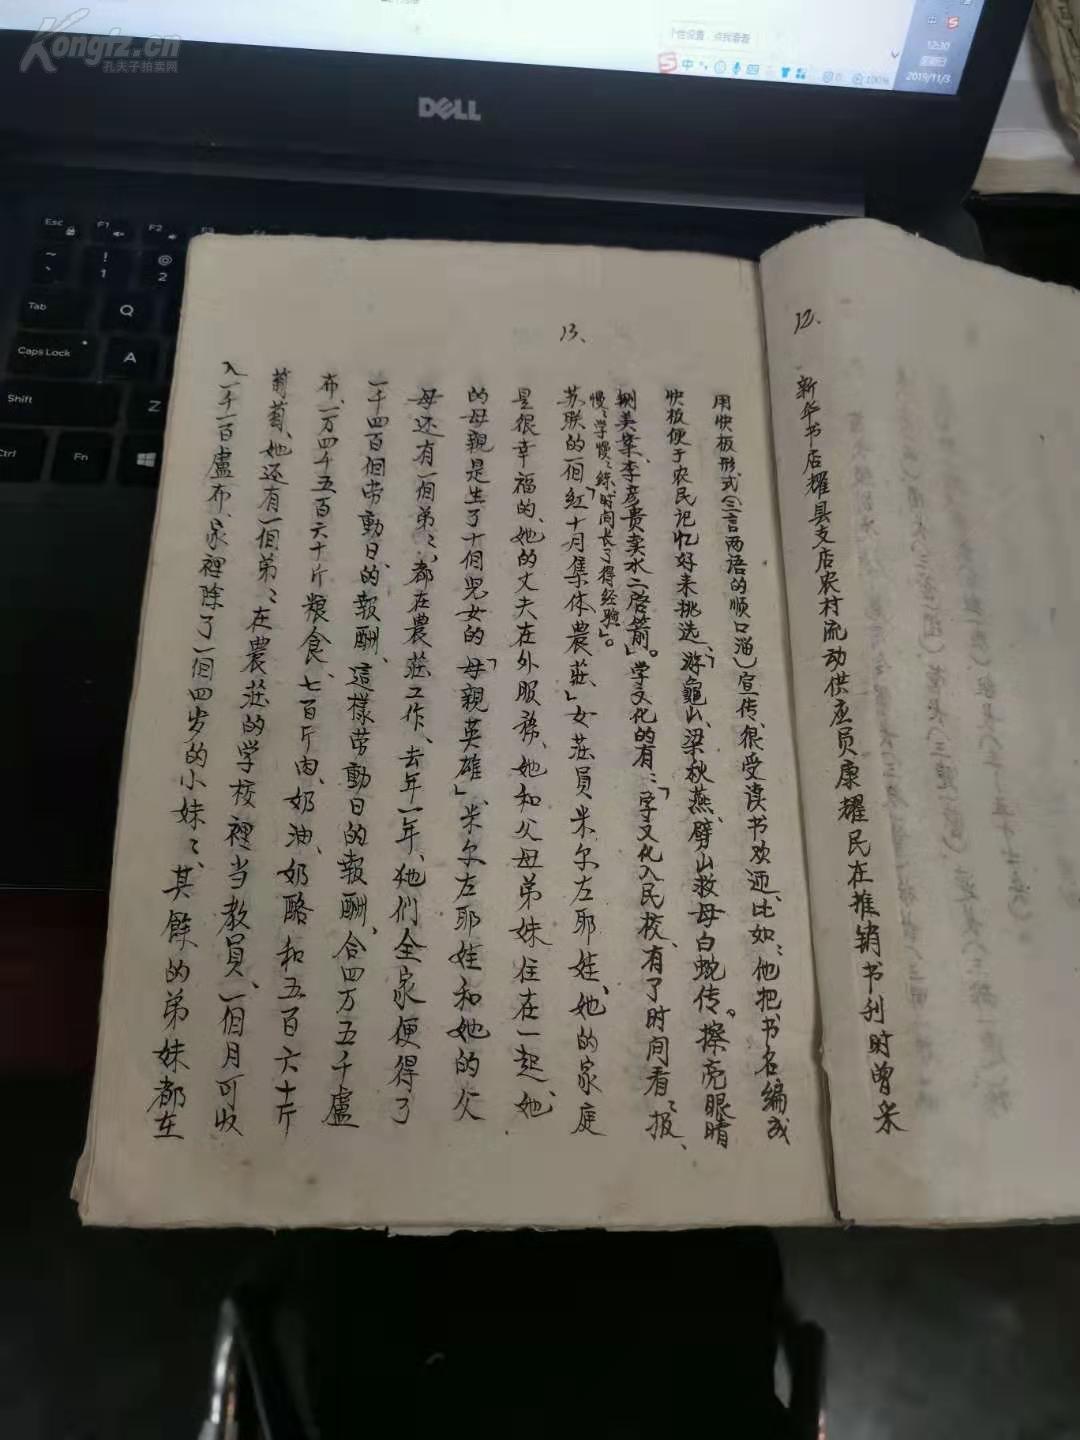 Kongfz.cn
孔夫子拍卖网
个性设置,点我看看
中
100%
12:30
星期日
2019/11/3
DELL
Esc
F1
F2
F3
~
!
1
@
2
Tab
Q
Caps Lock
A
Shift
Z
Ctrl
Fn
12.
新华书店耀县支店农村流动供应员康耀民在推销书刊时曾采
用快板形式(三言两语的顺口溜)宣传、很受读书欢迎、比如:他把书名编成
快板便于农民记忆好来挑选、「游龜山、梁秋燕、劈山救母白蛇传。擦亮眼睛
鍘美案、李彦贵卖水二启箭」。学文化的有:「学文化入民校、有了时间看报、
慢々学慢々练、时间长了得经验」。
13、
苏联的一個「红十月集体農莊」女莊員米尔左耶娃、她的家庭
是很幸福的、她的丈夫在外服務、她和父母弟妹住在一起、她
的母親是生了十個兒女的「母親英雄」、米尔左耶娃和她的父
母还有一個弟々、都在農莊工作、去年一年、他们全家便得了
一千四百個劳動日的報酬、這樣劳動日的報酬、合四万五千盧
布、一万四千五百六十斤粮食、七百斤肉、奶油、奶酪和五百六十斤
葡萄、她还有一個弟々在農莊的学校裡当教員、一個月可收
入一千一百盧布、家裡除了一個四岁的小妹々、其餘的弟妹都在